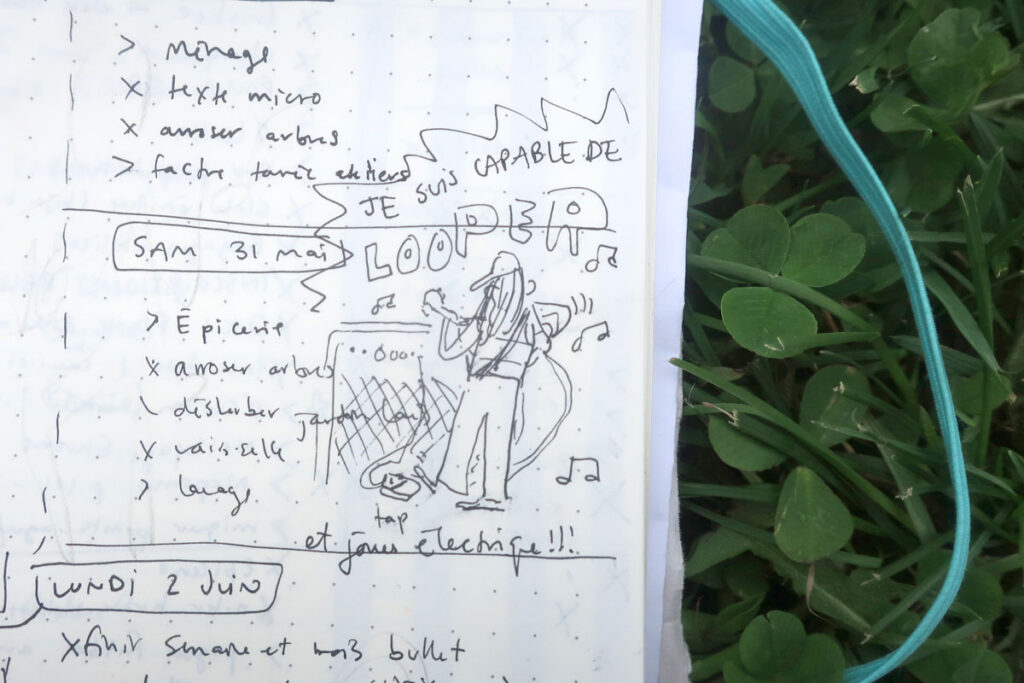 > Ménage
x texte micro
x arroser arbres
> factre tarif ateliers
JE SUIS CAPABLE DE
LOOPER
SAM 31 MAI
> Épicerie
x arroser arbres
\ désherber jardin
x vaisselle
> lavage
tap
et jouer électrique!!!
LUNDI 2 JUIN
x finir semaine et mois bullet